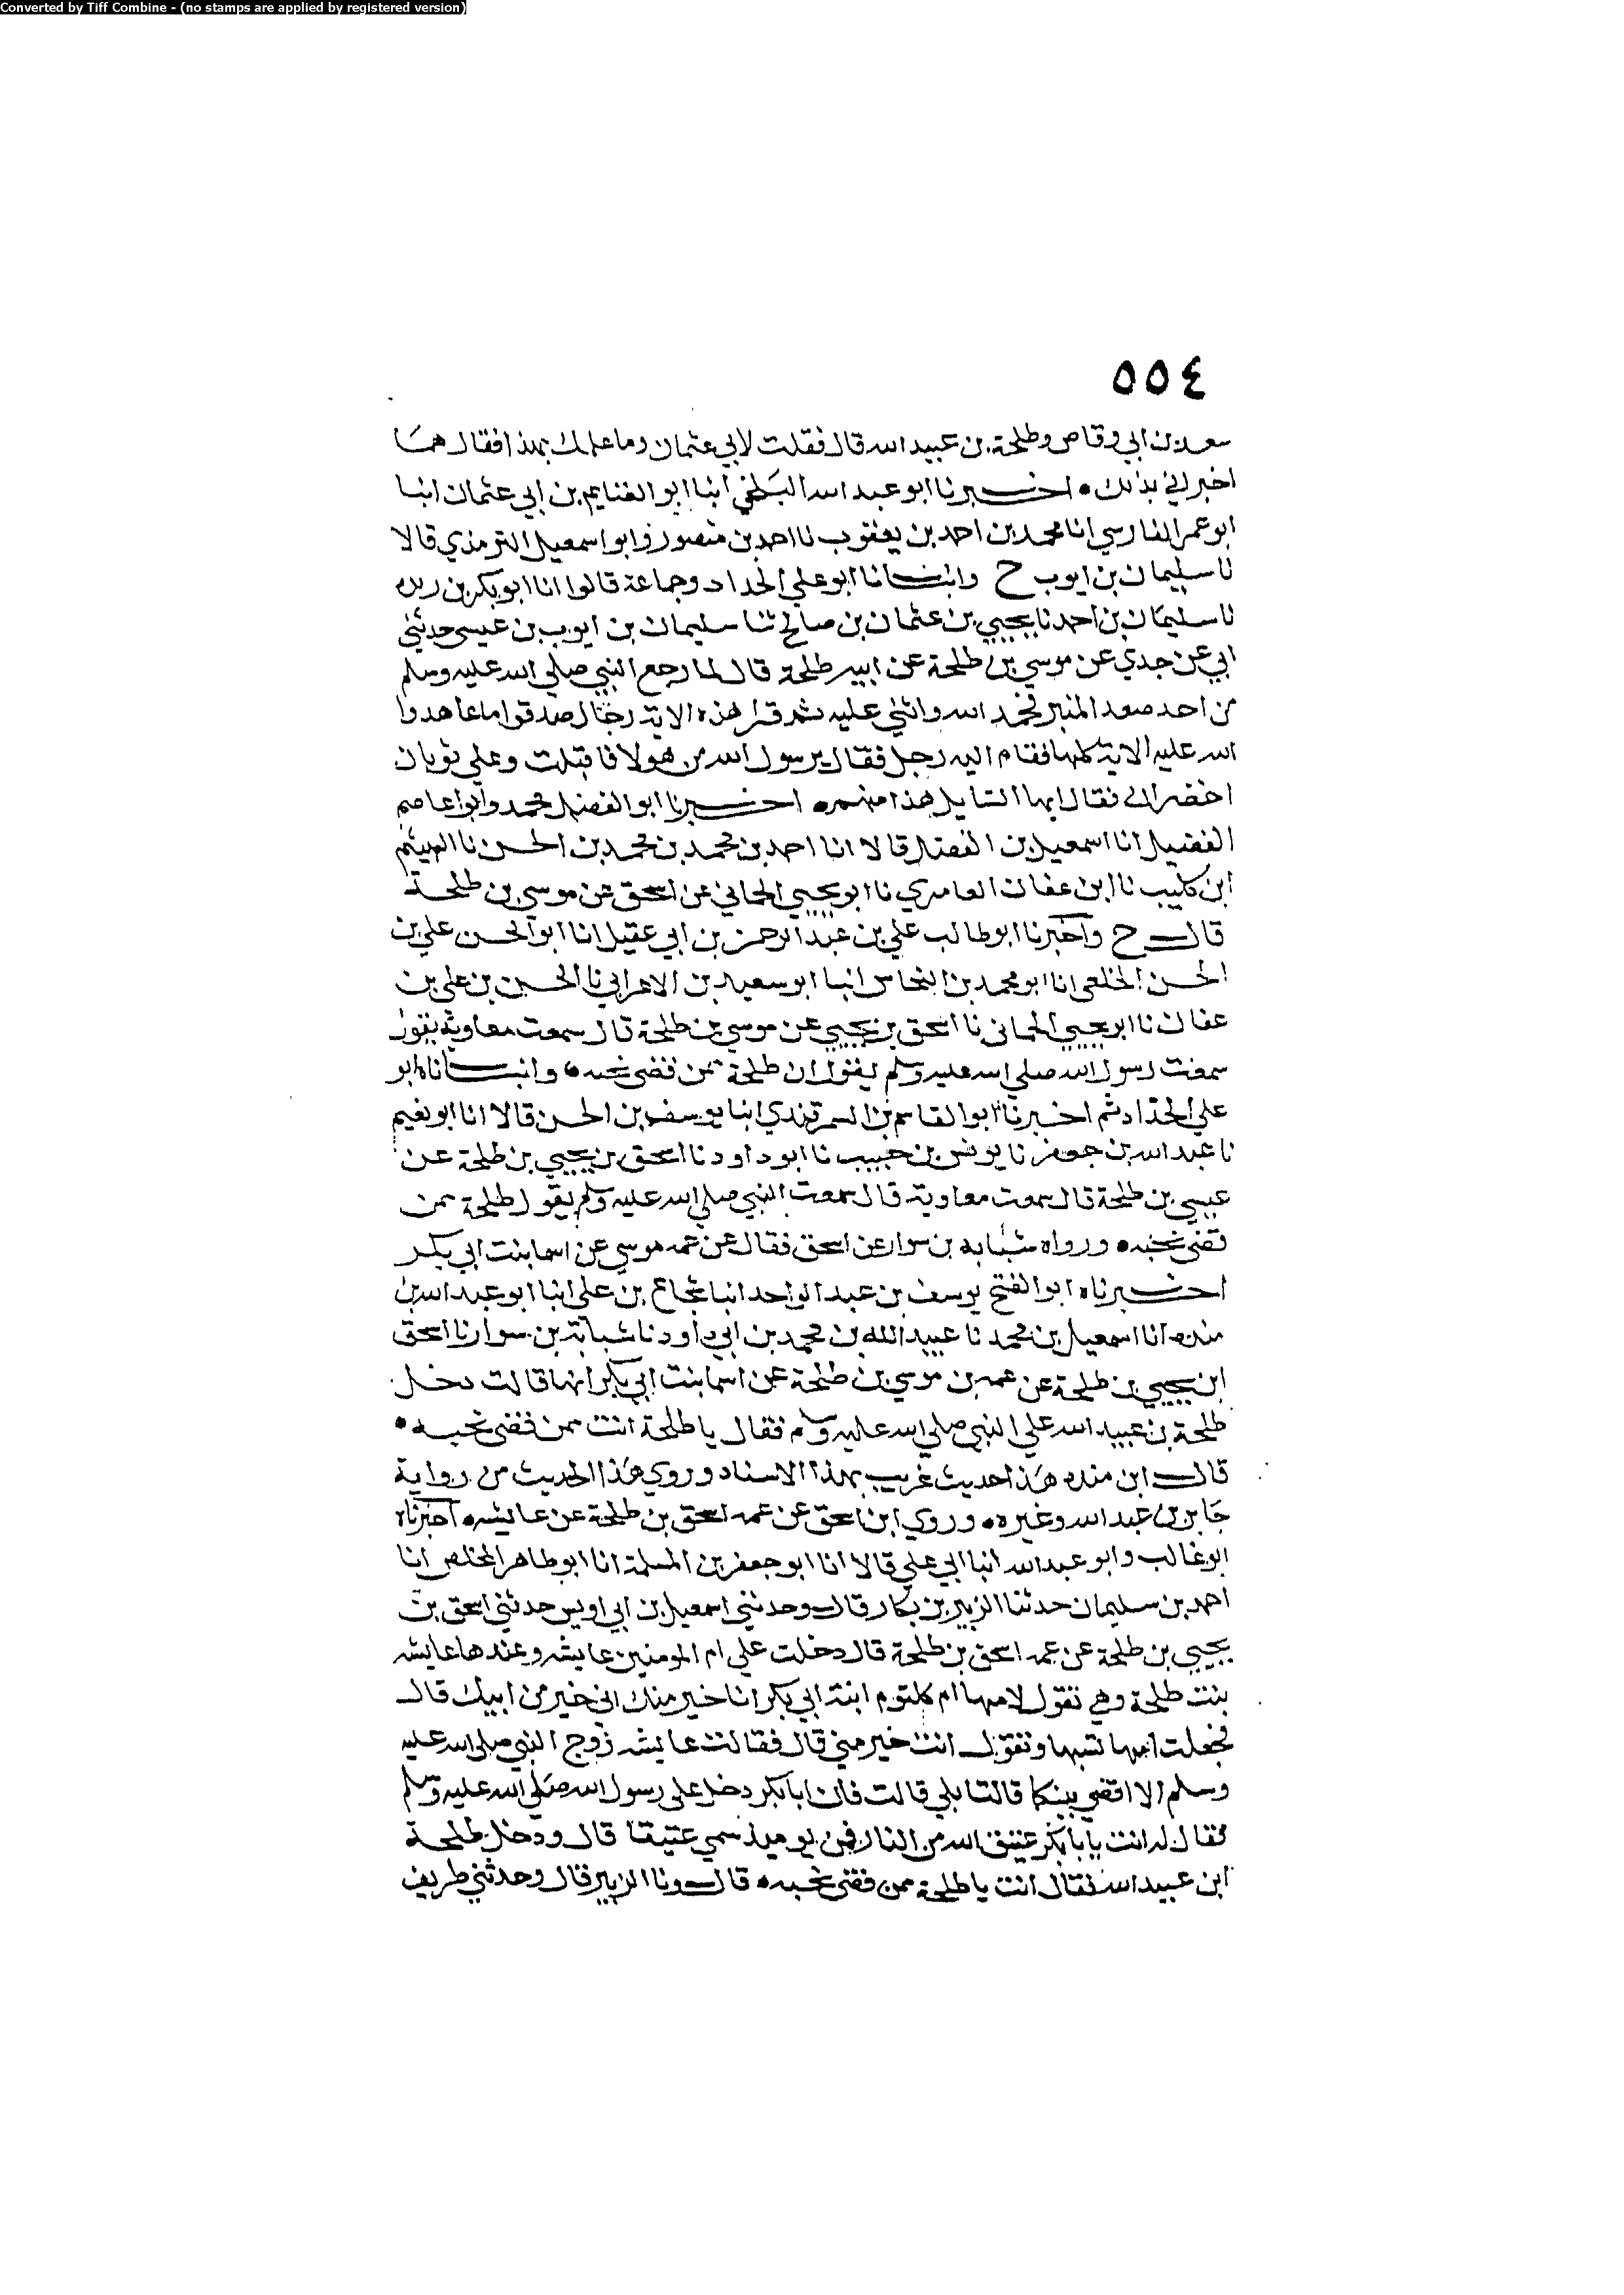 Converted by Tiff Combine - (no stamps are applied by registered version)
٥٥٤
سعد بن ابي وقاص وطلحة بن عبيد الله قال فقلت لابي عثمان وما علمك بهذا فقال هما
اخبراني بذلك • اخبرنا ابو عبد الله البلخي انبا ابو الغنايم بن ابي عثمان انبا
ابو عمر الفارسي انا محمد بن احمد بن يعقوب نا احمد بن منصور وابو اسمعيل الترمذي قالا
نا سليمان بن ايوب ح وانبانا ابو علي الحداد وجماعة قالوا انا ابو بكر بن ريده
نا سليمان بن احمد نا يحيي بن عثمان بن صالح ثنا سليمان بن ايوب بن عيسى حدثني
ابي عن جدي عن موسي بن طلحة عن ابيه طلحة قال لما رجع النبي صلي الله عليه وسلم
من احد صعد المنبر فحمد الله واثني عليه ثم قرا هذه الاية رجال صدقوا ما عاهدوا
الله عليه الاية كلها فقام اليه رجل فقال يرسول الله من هولا فاقبلت وعلي ثوبان
اخضران فقال ايها السايل هذا منهم • اخبرنا ابو الفضل محمد وابو عاصم
الفضيل انا اسمعيل بن الفضل قالا انا احمد بن محمد بن محمد بن الحسن نا الهيثم
ابن كليب نا ابن عفان العامري نا ابو يحيي الحماني عن اسحق عن موسي بن طلحة
قال ح واخبرنا ابو طالب علي بن عبد الرحمن بن ابي عقيل انا ابو الحسن علي بن
الحسن الخلعي انا ابو محمد بن النحاس انبا ابو سعيد بن الاعرابي نا الحسين بن علي بن
عفان نا ابو يحيي الحماني نا اسحق بن يحيي عن موسي بن طلحة قال سمعت معاوية يقول
سمعت رسول الله صلي الله عليه وسلم يقول ان طلحة ممن قضى نحبه • وانبانا ابو
علي الحداد ثم اخبرنا ابو القاسم بن السمرقندي انبا يوسف بن الحسن قالا انا ابو نعيم
نا عبد الله بن جعفر نا يونس بن حبيب نا ابو داود نا اسحق بن يحيي بن طلحة عن
عيسي بن طلحة قال سمعت معاوية قال سمعت النبي صلي الله عليه وسلم يقول طلحة ممن
قضى نحبه • ورواه شبابه بن سوار عن اسحق فقال عن عمه موسي عن اسما بنت ابي بكر
اخبرناه ابو الفتح يوسف بن عبد الواحد انبا شجاع بن علي انبا ابو عبد الله بن
منده انا اسمعيل بن محمد نا عبيد الله بن محمد بن ابي داود نا شبابة بن سوار نا اسحق
ابن يحيي بن طلحة عن عمه بن موسي بن طلحة عن اسما بنت ابي بكر انها قالت دخل
طلحة بن عبيد الله علي النبي صلي الله عليه وسلم فقال يا طلحة انت ممن قضى نحبه •
قال ابن منده هذا حديث غريب بهذا الاسناد وروي هذا الحديث من رواية
جابر بن عبد الله وغيره • وروي ابن اسحق عن عمه اسحق بن طلحة عن عايشه • اخبرناه
ابو غالب وابو عبد الله انبا ابي علي قالا انا ابو جعفر بن المسلمة انا ابو طاهر المخلص انا
احمد بن سليمان حدثنا الزبير بن بكار قال وحدثني اسمعيل بن ابي اويس حدثني اسحق بن
يحيي بن طلحة عن عمه اسحق بن طلحة قال دخلت علي ام المومنين عايشه وعندها عايشه
بنت طلحة وهي تقول لامها ام كلثوم ابنة ابي بكر انا خير منك ابي خير من ابيك قال
فجعلت امها تسبها وتقول انت خير مني قال فقالت عايشه زوج النبي صلي الله عليه
وسلم الا اقضي بينكما قالتا بلي قالت فان ابا بكر دخل على رسول الله صلي الله عليه وسلم
فقال له انت يا ابا بكر عتيق الله من النار فمن يوميذ سمي عتيقا قال ودخل طلحة
ابن عبيد الله فقال انت يا طلحة ممن قضى نحبه • قال ونا الزبير قال وحدثني طريف